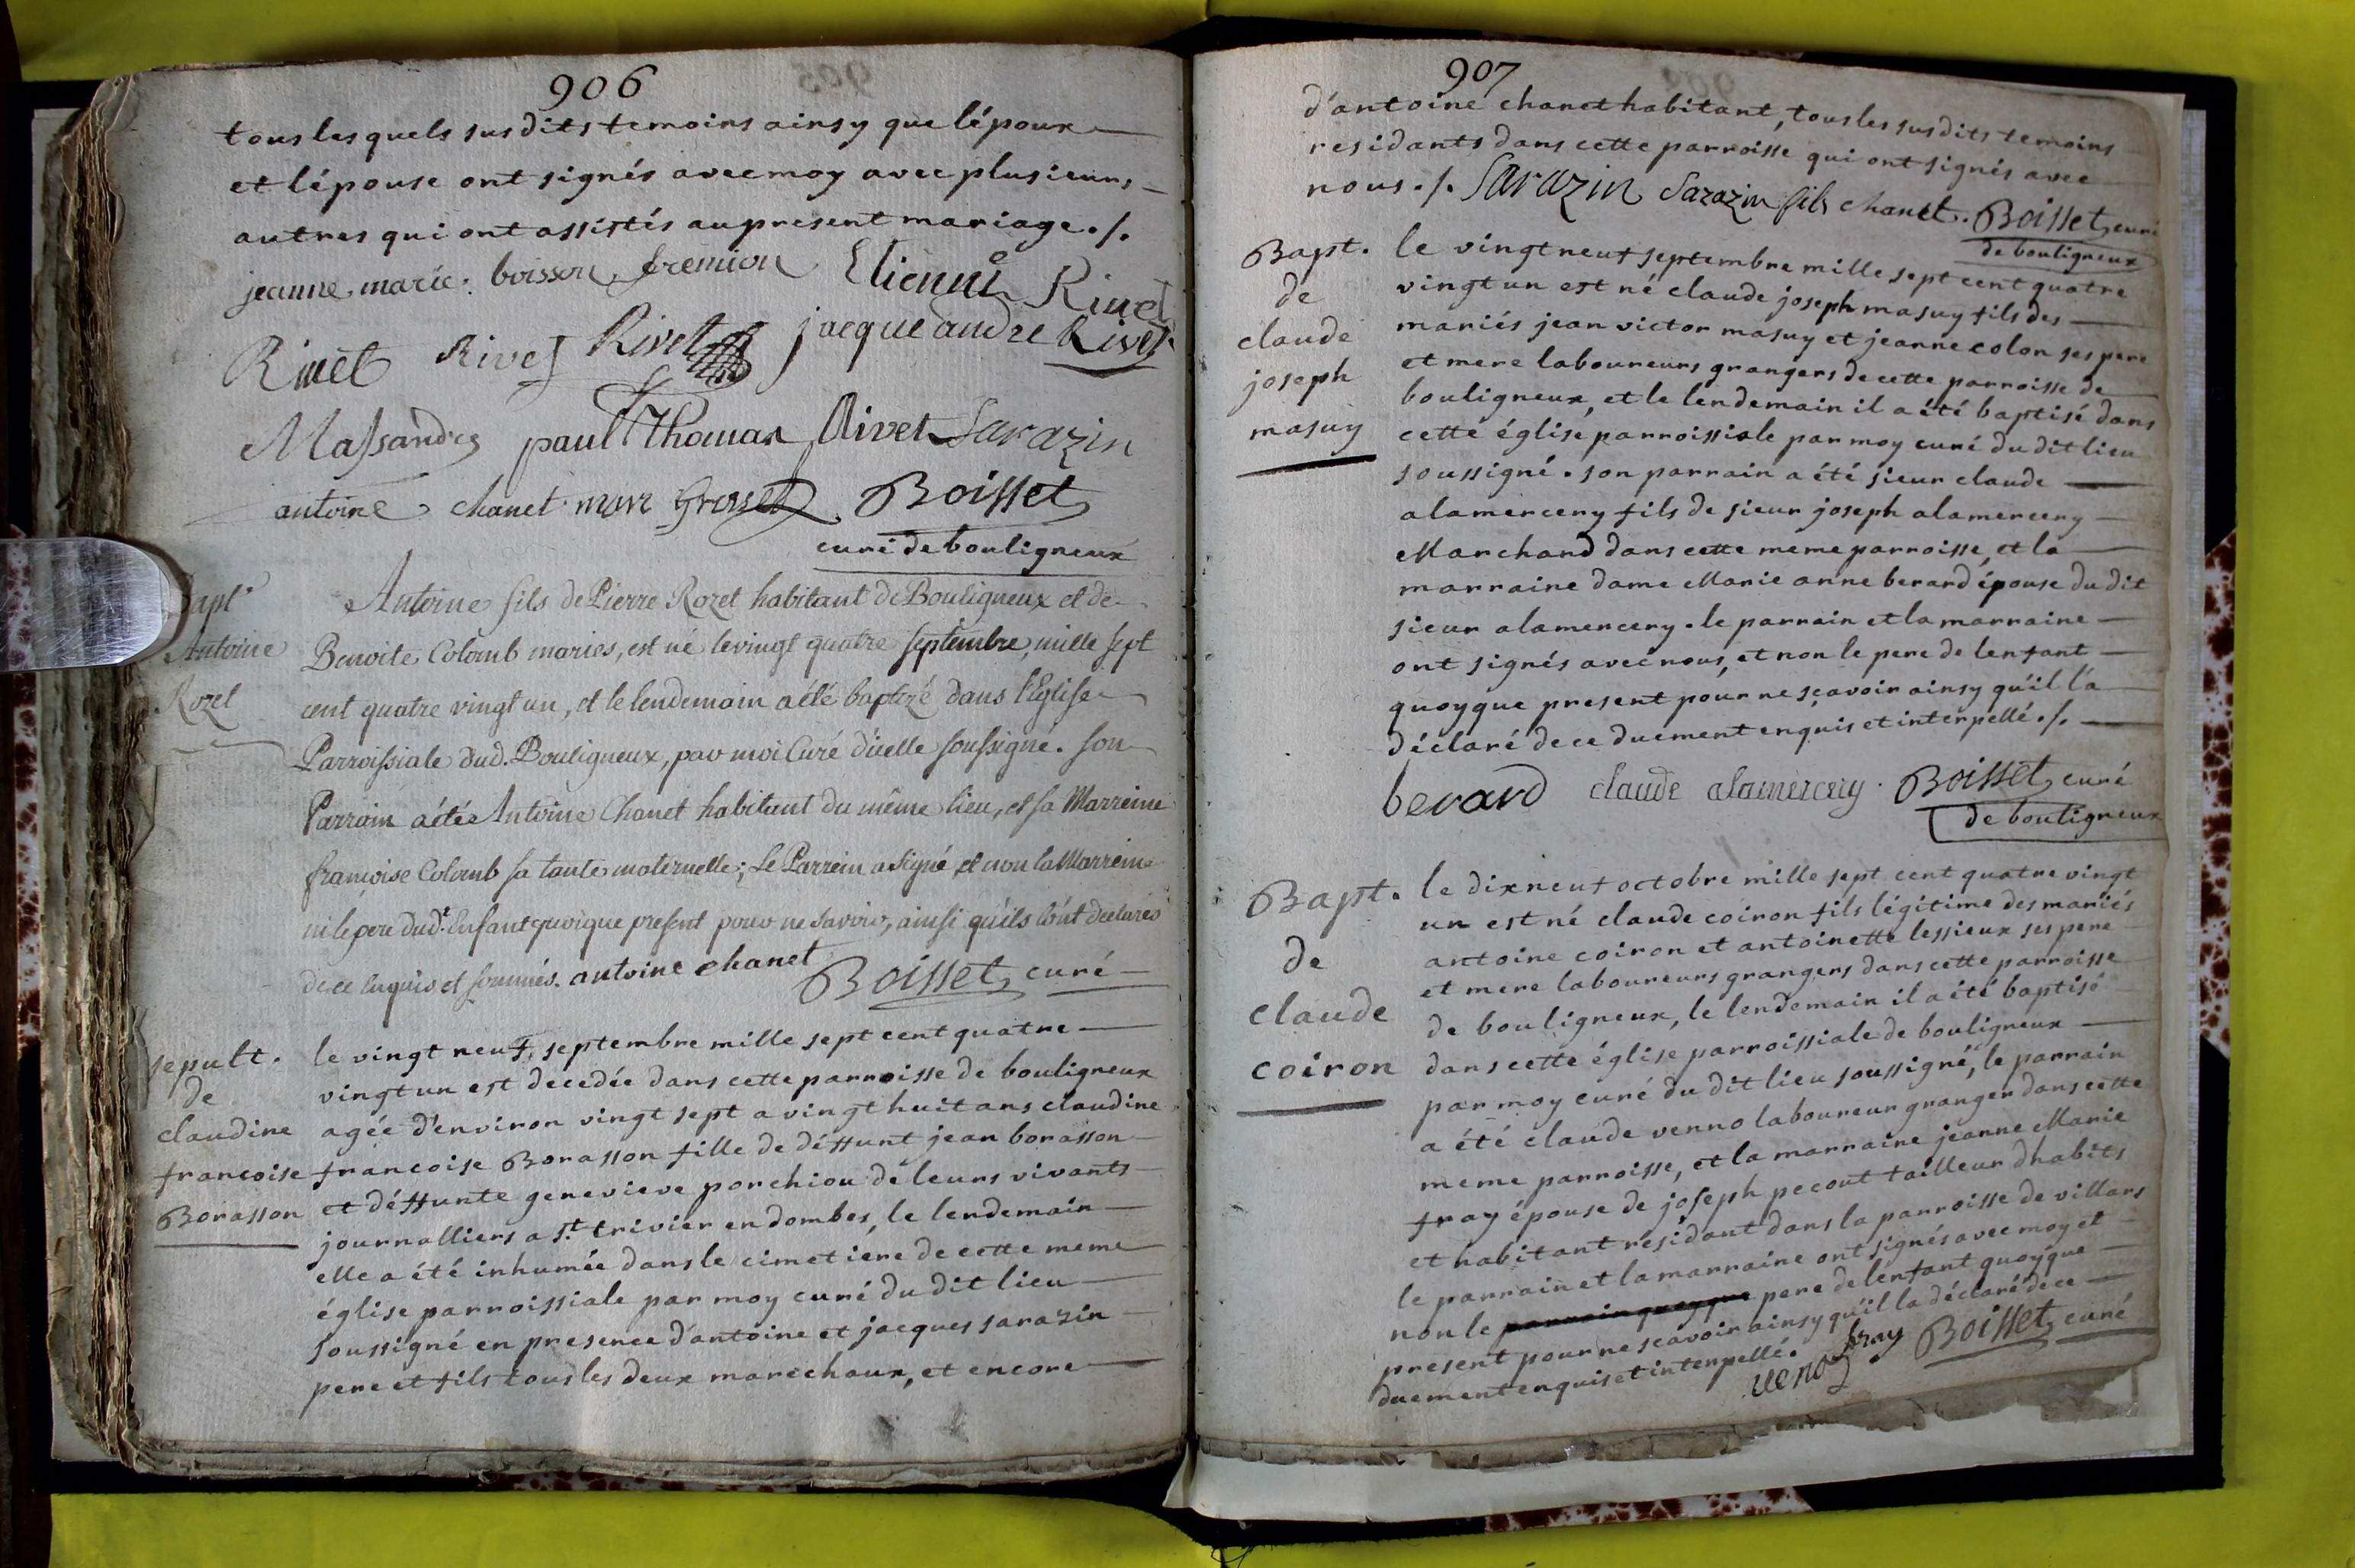 906
tous les quels sus dits temoins ainsy que l'époux
et l'épouse ont signés avec moy avec plusieurs
autres qui ont assistés au present mariage ./.
jeanne marie boisson fremion Etienne Rivet
Rivet Rivet Rivet jacque andre Rivet
Massandes paul Thomas Rivet Sarazin
antoine chanet marc Grosset Boisset
curé de bouligneux
Bapt.
Antoine
Rozet
Antoine fils de Pierre Rozet habitant de Bouligneux et de
Benoite Colomb mariés, est né le vingt quatre septembre, mille sept
cent quatre vingt un, et le lendemain a été baptizé dans l'Eglise
Parroissiale dud. Bouligneux, par moi Curé d'icelle soussigné. son
Parrain a été Antoine Chanet habitant du même lieu, et sa Marreine
françoise Colomb sa tante maternelle; Le Parrein a signé et non la Marreine
ni le pere dud.t Enfant quoique present pour ne savoir, ainsi qu'ils l'ont declarés
de ce Enquis et sommés. antoine chanet
Boisset curé
sepult.
de
claudine
francoise
Borasson
le vingt neuf septembre mille sept cent quatre
vingt un est decedée dans cette parroisse de bouligneux
agée d'environ vingt sept a vingt huit ans claudine
francoise Borasson fille de déffunt jean borasson
et déffunte genevieve porchiou de leurs vivants
journalliers a s.t trivier en dombes, le lendemain
elle a été inhumée dans le cimetiére de cette meme
église parroissiale par moy curé du dit lieu
soussigné en presence d'antoine et jacques sarazin
pere et fils tous les deux marechaux, et encore
907
d'antoine chanet habitant, tous les sus dits temoins
residants dans cette parroisse qui ont signés avec
nous ./. Sarazin Sarazin fils chanet. Boisset curé
de bouligneux
Bapt.
de
claude
joseph
masuy
le vingt neuf septembre mille sept cent quatre
vingt un est né claude joseph masuy fils des
mariés jean victor masuy et jeanne colon ses pere
et mere laboureurs grangers de cette parroisse de
bouligneux, et le lendemain il a été baptisé dans
cette église parroissiale par moy curé du dit lieu
soussigné. son parrain a été sieur claude
alamercery fils de sieur joseph alamercery
Marchand dans cette meme parroisse, et la
marraine dame Marie anne berard épouse du dit
sieur alamercery. le parrain et la marraine
ont signés avec nous, et non le pere de lenfant
quoyque present pour ne sçavoir ainsy qu'il l'a
déclaré de ce duement enquis et interpellé ./.
berard claude alamercery. Boisset curé
de bouligneux
Bapt.
de
claude
coiron
le dix neuf octobre mille sept cent quatre vingt
un est né claude coiron fils légitime des mariés
antoine coiron et antoinette lessieux ses pere
et mere laboureurs grangers dans cette parroisse
de bouligneux, le lendemain il a été baptisé
dans cette église parroissiale de bouligneux
par moy curé du dit lieu soussigné, le parrain
a été claude venno laboureur granger dans cette
meme parroisse, et la marraine jeanne Marie
fray épouse de joseph pecout tailleur dhabits
et habitant résidant dans la parroisse de villars
le parrain et la marraine ont signés avec moy et
non le parrain quoyque pere de lenfant quoyque
present pour ne scavoir ainsy qu'il la déclaré de ce
duement enquis et interpellé.
venoz fray Boisset curé